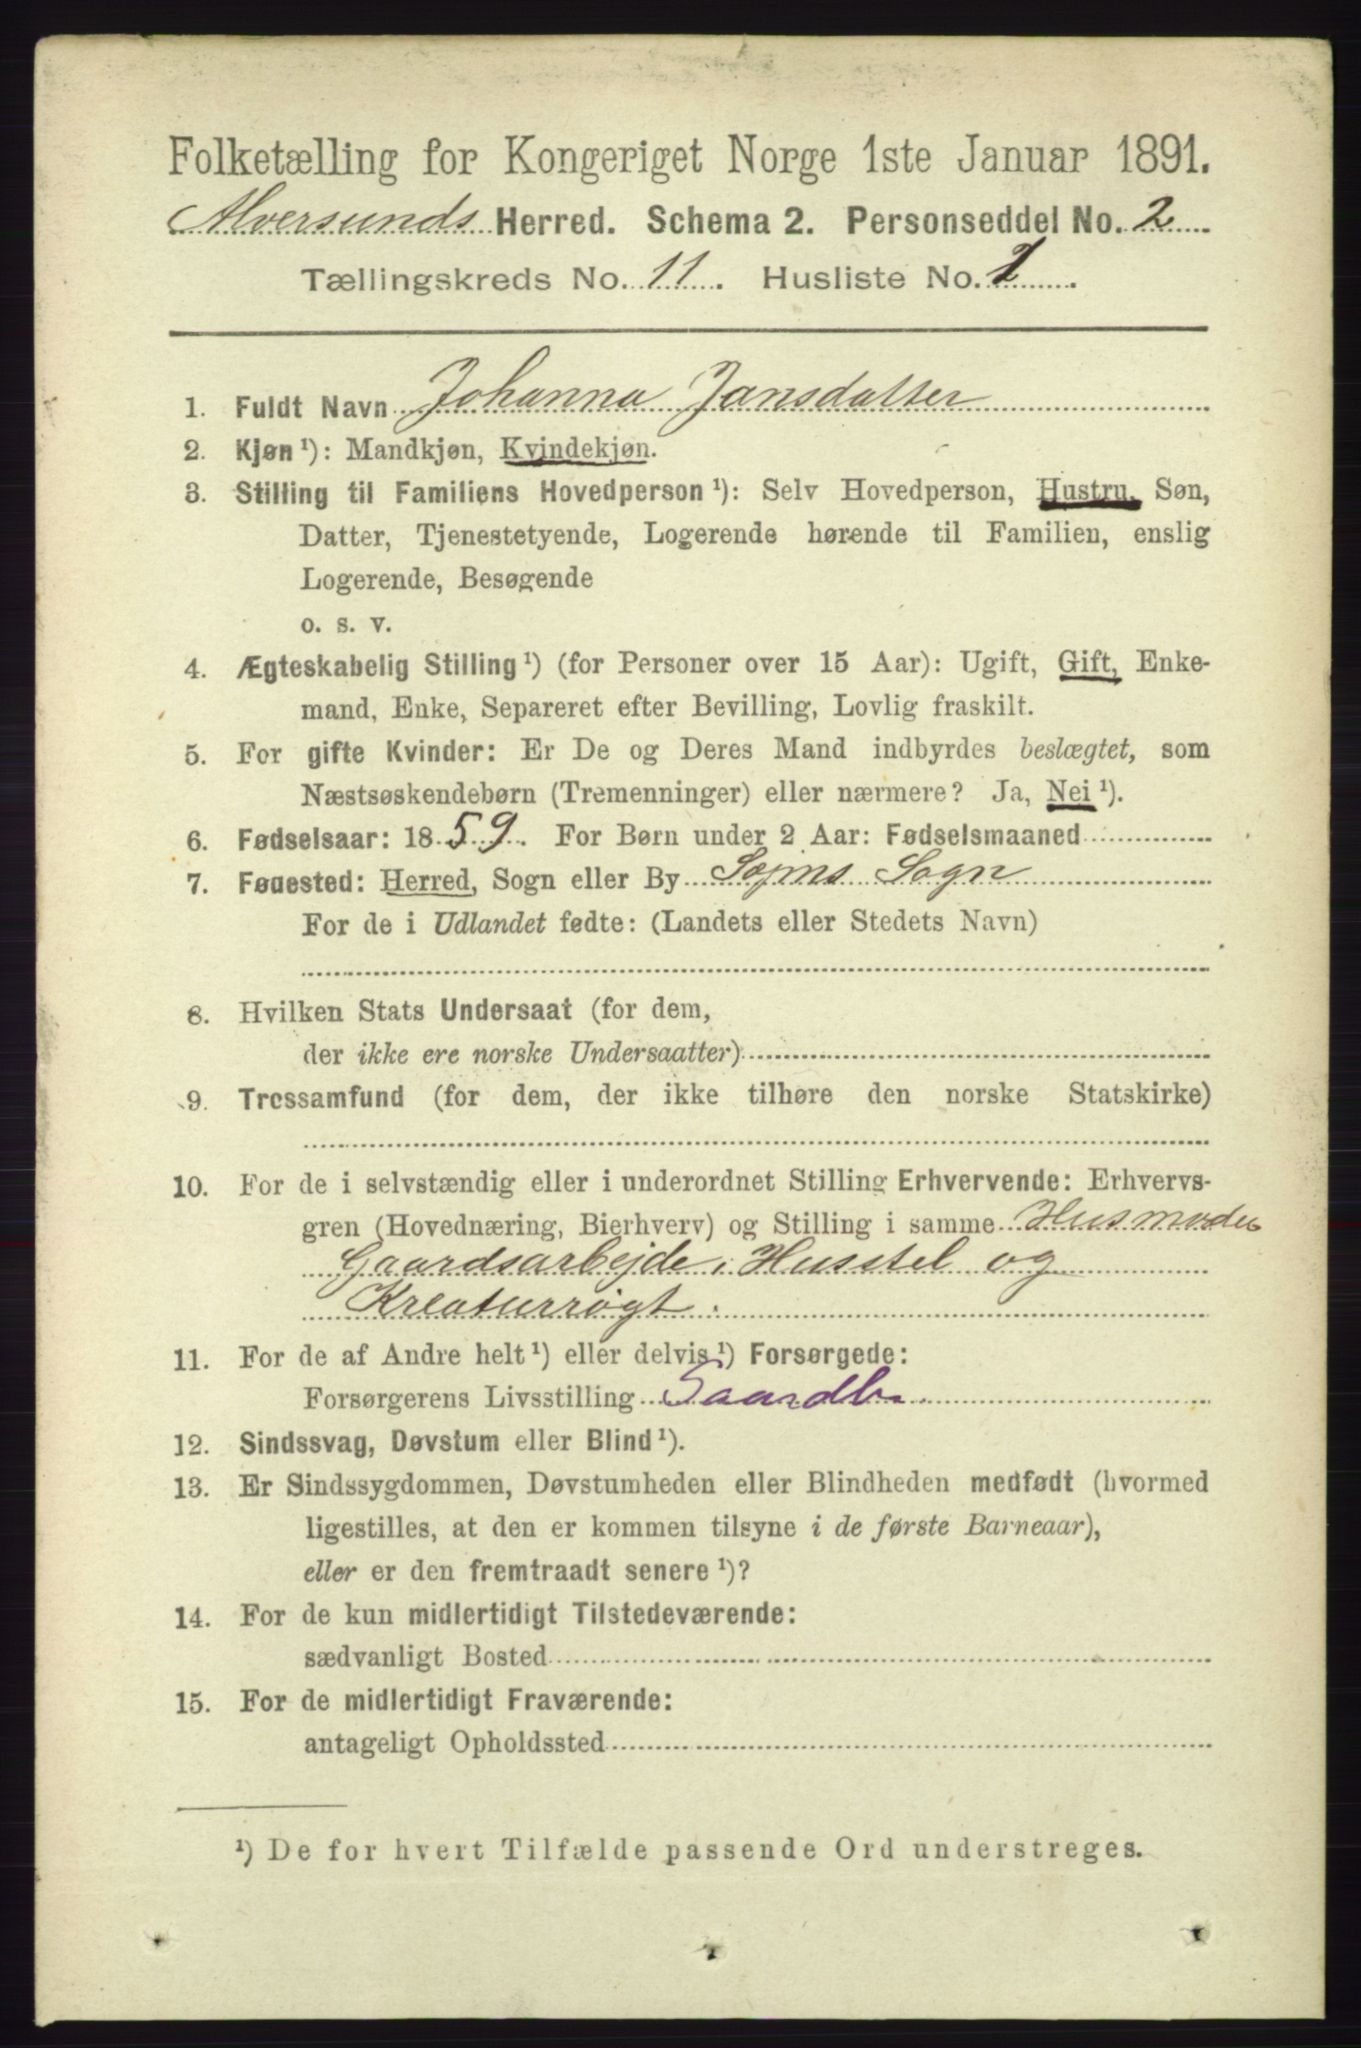 Folketælling for Kongeriget Norge 1ste Januar 1891.
Alversunds Herred. Schema 2. Personseddel No. 2
Tællingskreds No. 11. Husliste No. 1.
1. Fuldt Navn Johanna Jansdatter
2. Kjøn ¹): Mandkjøn, Kvindekjøn.
3. Stilling til Familiens Hovedperson ¹): Selv Hovedperson, Hustru, Søn,
Datter, Tjenestetyende, Logerende hørende til Familien, enslig
Logerende, Besøgende
o. s. v.
4. Ægteskabelig Stilling ¹) (for Personer over 15 Aar): Ugift, Gift, Enke-
mand, Enke, Separeret efter Bevilling, Lovlig fraskilt.
5. For gifte Kvinder: Er De og Deres Mand indbyrdes beslægtet, som
Næstsøskendebørn (Tremenninger) eller nærmere? Ja, Nei ¹).
6. Fødselsaar: 1859. For Børn under 2 Aar: Fødselsmaaned
7. Føuested: Herred, Sogn eller By Sogn
For de i Udlandet fødte: (Landets eller Stedets Navn)
8. Hvilken Stats Undersaat (for dem,
der ikke ere norske Undersaatter)
9. Trossamfund (for dem, der ikke tilhøre den norske Statskirke)
10. For de i selvstændig eller i underordnet Stilling Erhvervende: Erhvervs-
gren (Hovednæring, Bierhverv) og Stilling i samme Husmoder
Gaardsarbejde, Husstel og
Kreaturrøgt.
11. For de af Andre helt ¹) eller delvis ¹) Forsørgede:
Forsørgerens Livsstilling Gaardbr.
12. Sindssvag, Døvstum eller Blind ¹).
13. Er Sindssygdommen, Døvstumheden eller Blindheden medfødt (hvormed
ligestilles, at den er kommen tilsyne i de første Barneaar),
eller er den fremtraadt senere ¹)?
14. For de kun midlertidigt Tilstedeværende:
sædvanligt Bosted
15. For de midlertidigt Fraværende:
antageligt Opholdssted
¹) De for hvert Tilfælde passende Ord understreges.